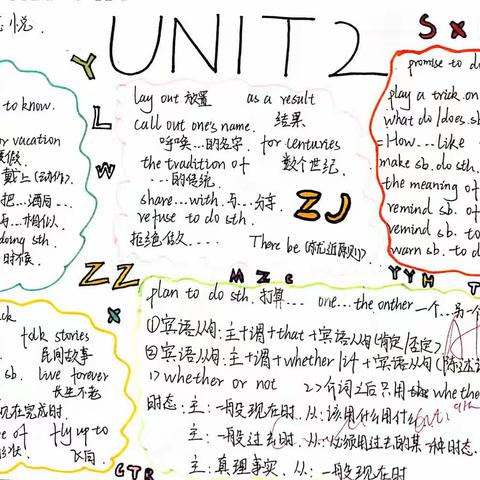 悦.
UNIT 2
S X
Y
L
W
ZZ
X
to know.
or vacation
度假.
戴上(动作)
把…洒向…
与…相似.
doing sth.
时候.
lay out 放置 as a result
结果
call out one's name.
呼唤…的名字. for centuries
the tradition of 数个世纪.
…的传统.
share…with…与…分享.
refuse to do sth.
拒绝做…… There be (就近原则)
ZJ
M Z C
Y Y H T
promise to do
play a trick on
what do/does sb.
=How…like
make sb. do sth.
the meaning of
remind sb. of
remind sb. to
warn sb. to d
folk stories
民间故事
sb. live forever
长生不老
现在完成时.
e of fly up to
形状. 飞向.
C T R
plan to do sth. 打算… one…the onther 一个…另一个
①宾语从句:主+谓+that+宾语从句(肯定/否定)
②宾语从句:主+谓+whether/if+宾语从句(陈述语
1>whether or not 2>介词之后只用 whethe
时态:主:一般现在时.从:该用什么用什么
主:一般过去时.从:必须用过去的某一种时态.
主:真理事实.从:一般现在时